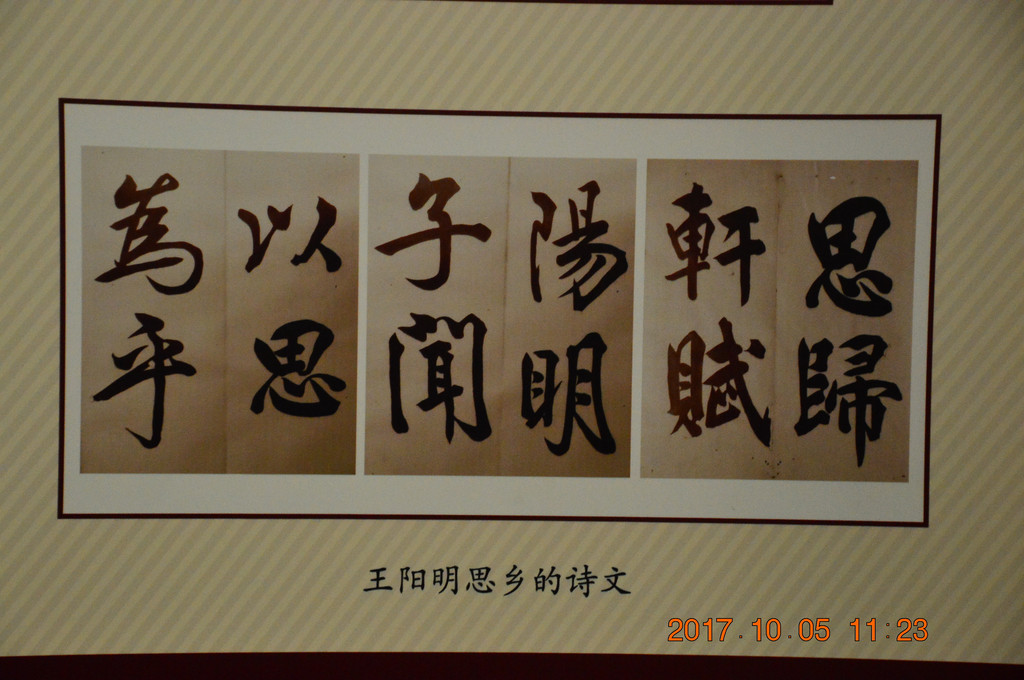 思歸
軒賦
陽明
子聞
以思
為乎
王阳明思乡的诗文
2017.10.05 11:23